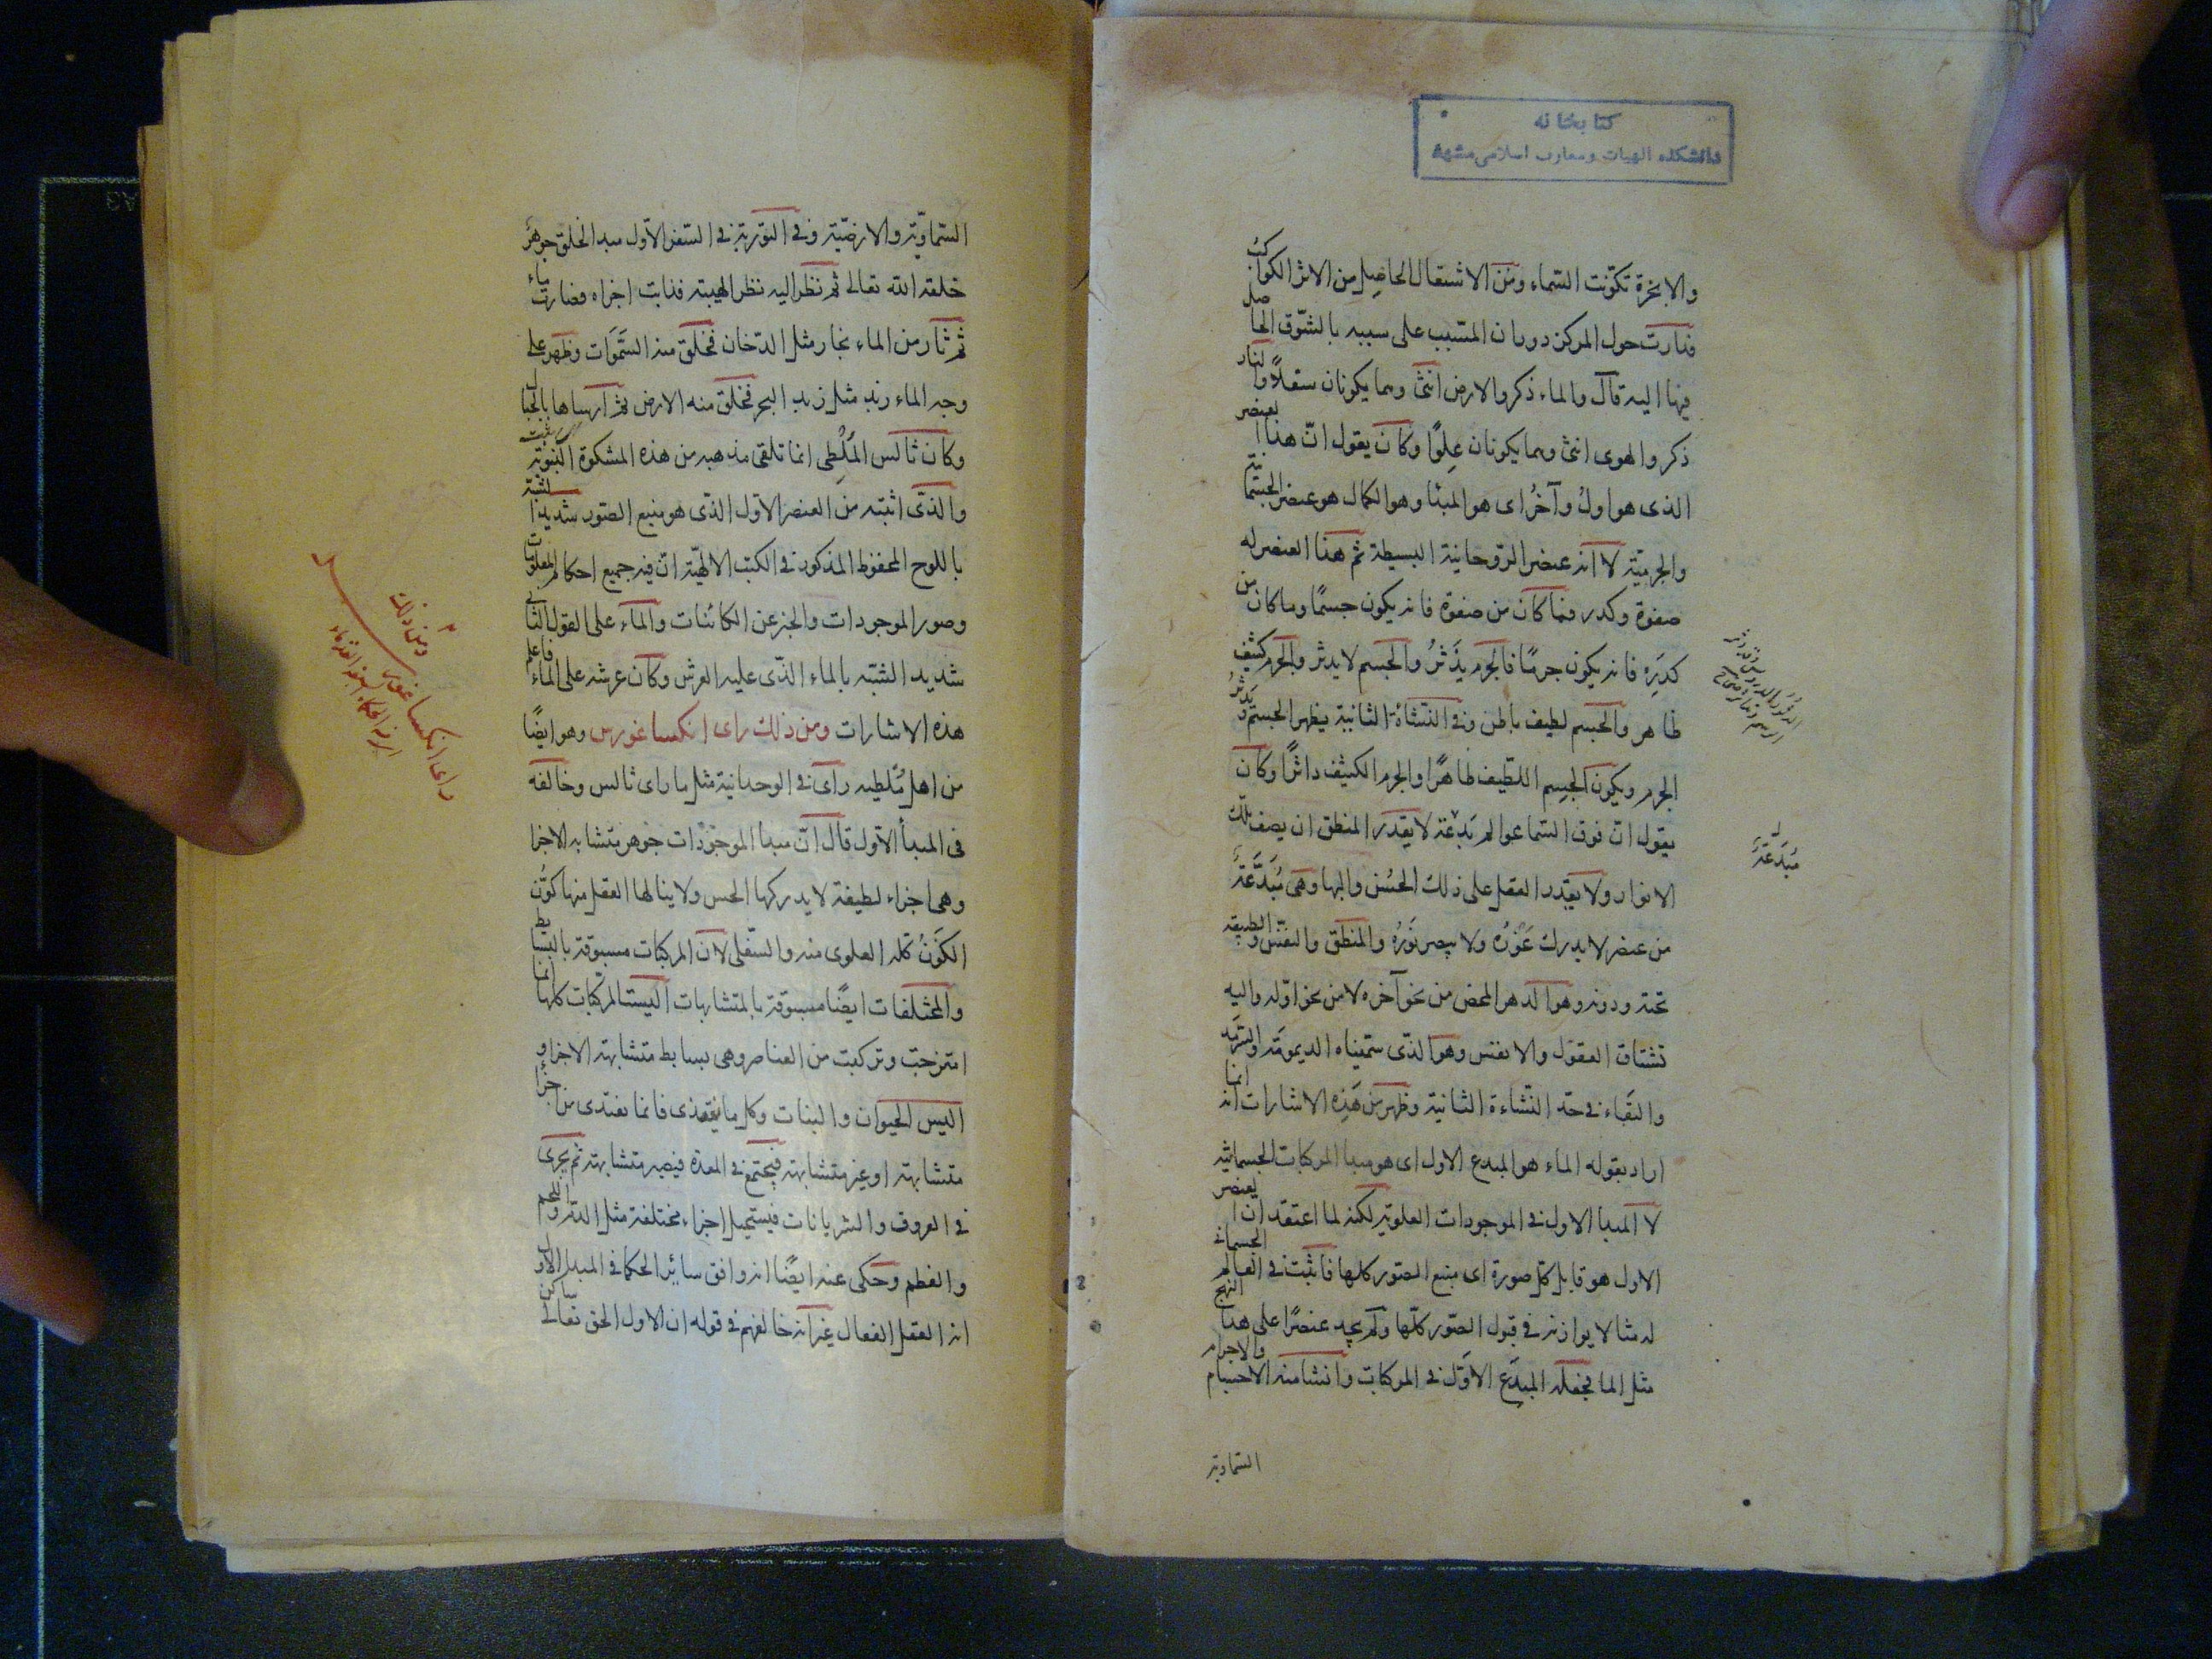 كتابخانه
دانشكده الهيات ومعارف اسلامى مشهد
والابخرة تكونت السماء ومن الاشتعال الحاصل من الاثر الكواكب
فدارت حول المركز دوران المسبب على سببه بالشوق الحاصل
فيها اليه قال والماء ذكر والارض انثى وهما يكونان سفلاً والنار
ذكر والهوى انثى وهما يكونان علوًا وكان يقول انّ هذا العنصر
الذى هو اولٌ وآخرٌ اى هو المبدا وهو الكمال هو عنصر الجسمانيّة
والجرميّة لا انه عنصر الروحانية البسيطة ثم هذا العنصر له
صفوة وكدر فما كان من صفوة فانه يكون جسمًا وما كان من
كدَرِه فانه يكون جرمًا فالجرم يدْثرُ والجسم لا يدثر والجرم كثيف
ظاهر والجسم لطيف باطن وفى النشاة الثانية يظهر الجسم ويدثرُ
الجرم ويكون الجسم اللطيف ظاهرًا والجرم الكثيف داثرًا وكان
يقول انّ فوق السما عوالم مبدعة لا يقدر المنطق ان يصف تلك
الانوار ولا يقدر العقل على ذلك الحسن والبها وهى مُبَدَّعَةٌ
من عنصر لا يدرك غَوْرُه ولا يبصر نَورُه والمنطق والنفس والطبيعة
تحته ودونه وهو الدهر المحض من نحو آخره لا من نحو اوّله واليه
تشتاق العقول والانفس وهو الذى سميناه الديمومة والسّرمد
والبَقَاء فى حدّ النشاءة الثانية وظهر من هَذِه الاشارات انه انما
اراد بقوله الماء هو المبدع الاول اى هو مبدا المركبات الجسمانية
لا المبدا الاول فى الموجودات العلوية لكنه لما اعتقد ان العنصر
الاول هو قابل كلّ صورة اى منبع الصور كلها فاثبت فى العالم الجسمانى
له مثالا يوازنه فى قبول الصّور كلّها ولم يجد عنصرًا على هذا النهج
مثل الما فجعله المبدَع الاوّل فى المركبات وانشا منه الاجسام والاجرام
مُبَدَّعَةٌ
السماوية
السماويّة والارضيّة وفى التورية فى السّفر الاول مبدا الخلق جوهرٌ
خلقه الله تعالى ثم نظر اليه نظر الهيبة فذابت اجزاه فصارت ماء
ثم ثار من الماء بخار مثل الدّخان فخلق منه السَّمَوات وظهر على
وجه الماء زبد مثل زبد البحر فخلق منه الارض ثم ارساها بالجبال
وكان ثالس المَلْطِى انما تلقى مذهبه من هذه المشكوة النبوية
والذى اثبته من العنصر الاول الذى هو منبع الصور شديد الشبه
باللوح المحفوظ المذكور فى الكتب الالهيّة انّ فيه جميع احكام المعلومات
وصور الموجودات والخبر عن الكائنات والماء على القول الثانى
شديد الشبه بالماء الذى عليه العرش وكان عرشه على الماء فاعلم
هذه الاشارات ومن ذلك راى انكساغورس وهو ايضًا
من اهل مُلطيه راى فى الوحدانية مثل ما راى ثالس وخالفه
فى المبدأ الاول قال انّ مبدا الموجودات جوهر متشابه الاجزا
وهى اجزاء لطيفة لا يدركها الحس ولا ينالها العقل منها كوُّن
الكَونُ كله العلوى منه والسّفلى لان المركبات مسبوقة بالبسايط
والمختلفات ايضًا مسبوقة بالمتشابهات اليست المركبات كلها انما
امتزجت وتركبت من العناصر وهى بسايط متشابهة الاجزاء و
اليس الحيوان والنبات وكل ما يتغذى فانما يغتذى من اجزاء
متشابهة او غير متشابهة فيجتمع فى المعدة فيصير متشابهة ثم يجرى
فى العروق والشريانات فيستحيل اجزاء مختلفة مثل الدّم واللحم
والعظم وحكى عنه ايضًا انه وافق سائر الحكما فى المبدا الاول
انه العقل الفعال غير انه خالفهم فى قوله ان الاول الحق تعالى ساكن
ومن ذلك
راى انكساغورس